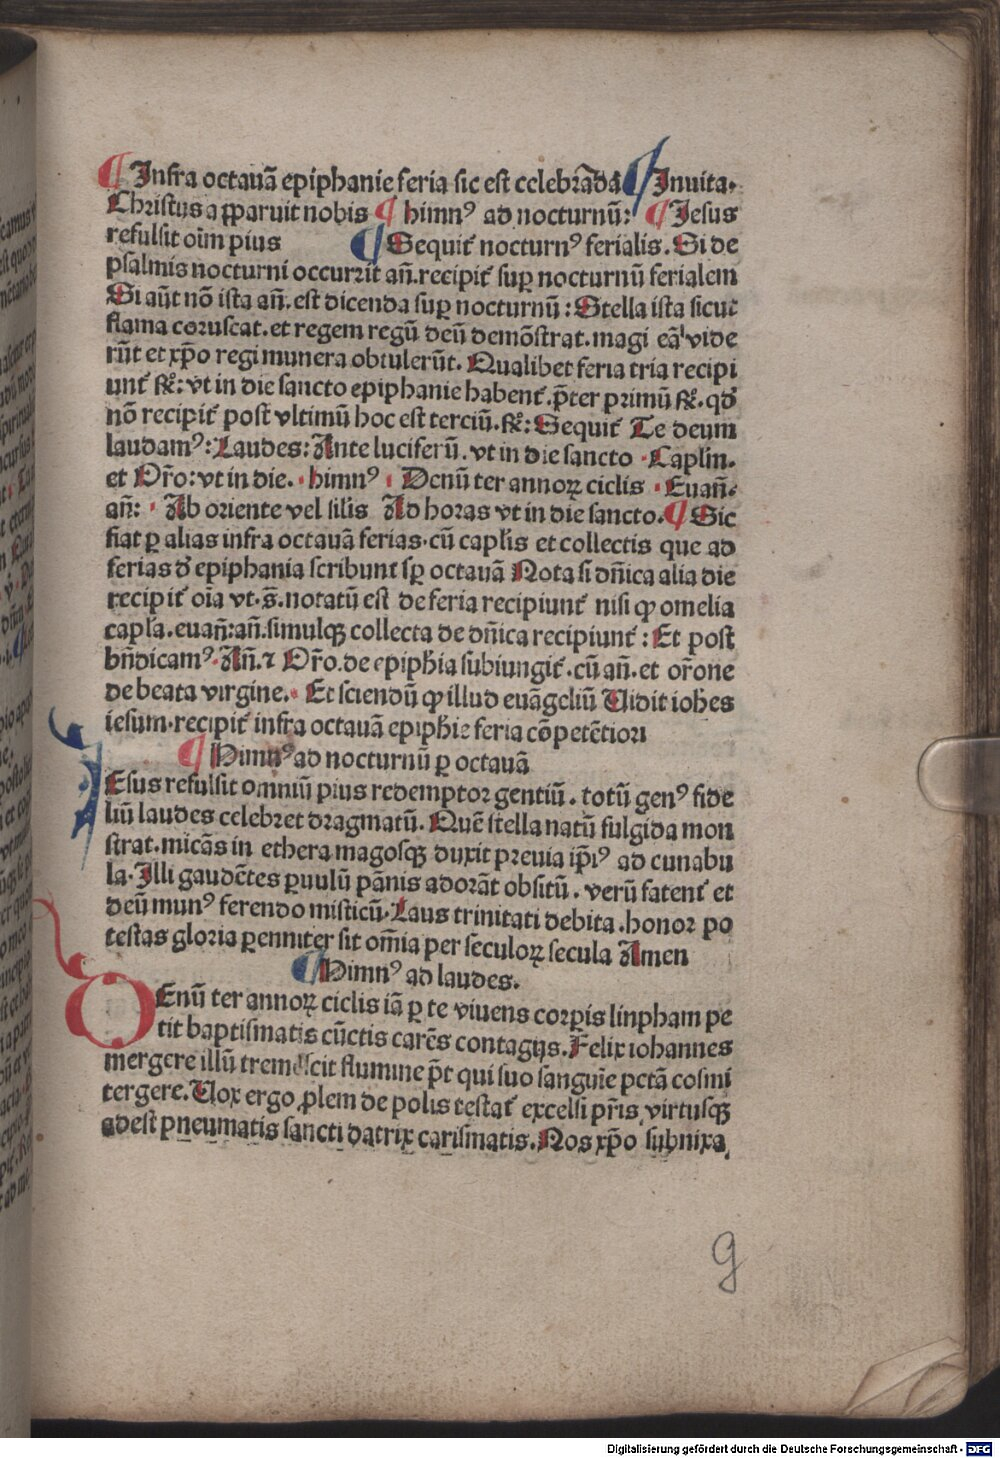 ¶ Infra octauā epiphanie feria sic est celebrādā ¶ Inuita.
Christus apparuit nobis ¶ himnꝰ ad nocturnū: ¶ Jesus
refulsit oīm pius ¶ Sequit᷑ nocturnꝰ ferialis. Si de
psalmis nocturni occurrit an̄. recipit᷑ suꝑ nocturnū ferialem
Si aūt nō ista an̄. est dicenda suꝑ nocturnū: Stella ista sicut
flama coruscat. et regem regū deū demōstrat. magi eā vide
rūt et xp̄o regi munera obtulerūt. Qualibet feria tria recipi
unt᷑ ꝶ: vt in die sancto epiphanie habent᷑. p̄ter primū ꝶ. qđ
nō recipit᷑ post vltimū hoc est terciū. ꝶ: Sequit᷑ Te deum
laudamꝰ: Laudes: Ante luciferū. vt in die sancto Caplm.
et Or̄o: vt in die. himnꝰ Denū ter annoꝝ ciclis Euan̄.
an̄: Ab oriente vel silis Ad horas vt in die sancto. ¶ Sic
fiat ꝑ alias infra octauā ferias. cū caplis et collectis que ad
ferias đ epiphania scribunt sꝑ octauā Nota si dn̄ica alia die
recipit᷑ oīa vt. s̄. notatū est de feria recipiunt᷑ nisi ꝙ omelia
capla. euan̄: an̄. simulqꝫ collecta de dn̄ica recipiunt᷑: Et post
bn̄dicamꝰ. An̄. ⁊ Or̄o. de epiphīa subiungit᷑. cū an̄. et or̄one
de beata virgine. Et sciendū ꝙ illud euāgeliū Uidit iohēs
iesum. recipit᷑ infra octauā epiphīe feria cōpetētiori
¶ Himnꝰ ad nocturnū ꝑ octauā
IEsus refulsit omniū pius redemptor gentiū. totū genꝰ fide
liū laudes celebret dragmatū. Quē stella natū fulgida mon
strat. micās in ethera magosqꝫ duxit preuia ip̄iꝰ ad cunabu
la. Illi gaudētes ꝑuulū pānis adorāt obsitū. verū fatent᷑ et
deū munꝰ ferendo misticū. Laus trinitati debita. honor po
testas gloria ꝑenniter sit om̄ia per seculoꝝ secula Amen
¶ Himnꝰ ad laudes.
DEnū ter annoꝝ ciclis iā ꝑ te viuens corpis linpham pe
tit baptismatis cūctis carēs contagijs. Felix iohannes
mergere illū tremescit flumine p̄t qui suo sanguīe pctā cosmi
tergere. Uox ergo plem de polis testat᷑ excelsi pr̄is virtusqꝫ
adest pneumatis sancti datrix carismatis. Nos xp̄o subnixa
g
Digitalisierung gefördert durch die Deutsche Forschungsgemeinschaft - DFG